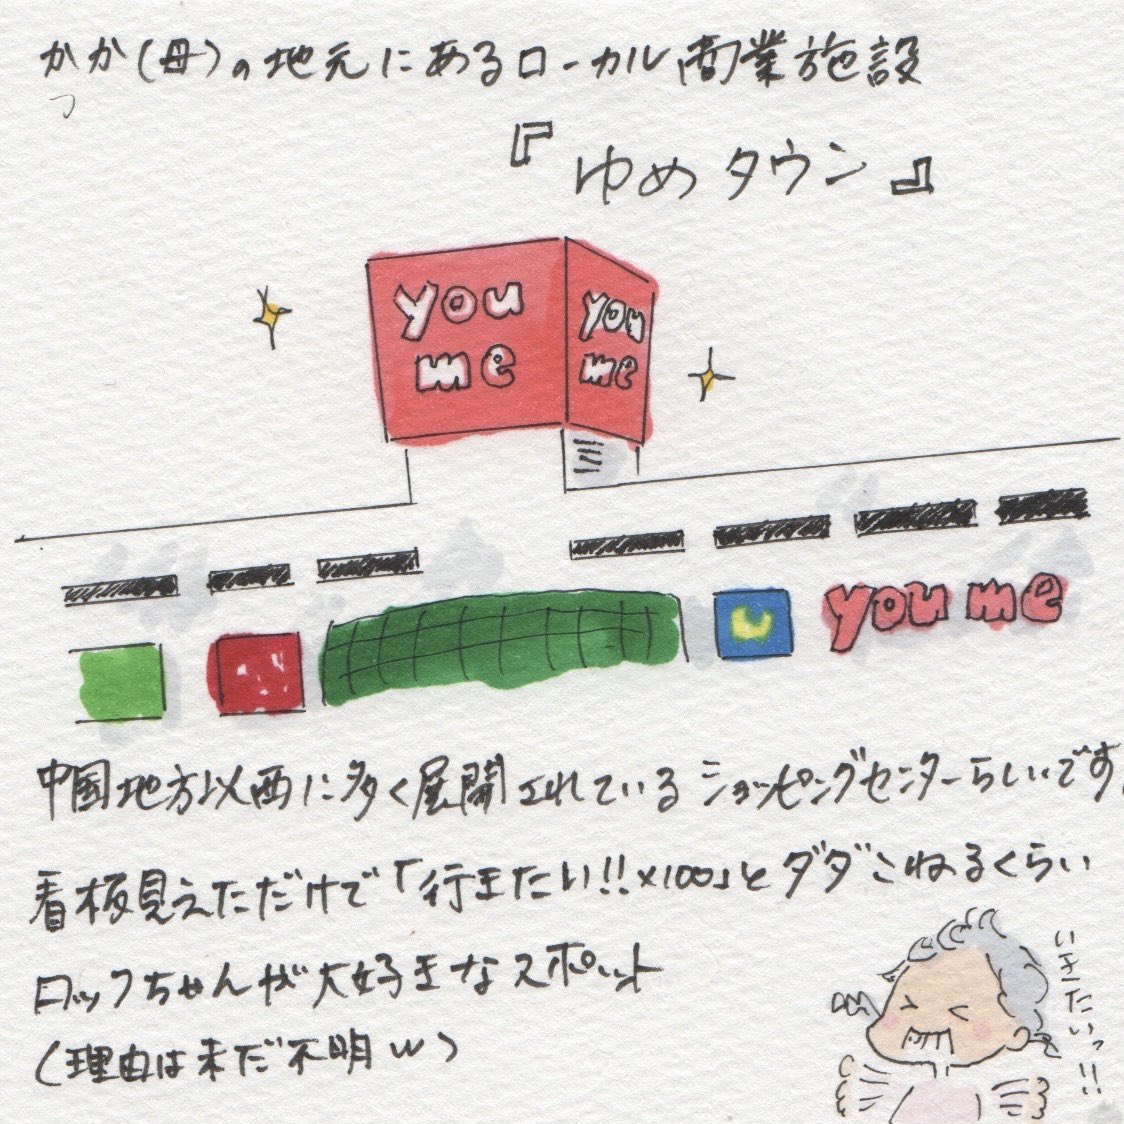 かか(母)の地元にあるローカル商業施設
『ゆめタウン』
you
me
you
me
you me
中国地方以西に多く展開されているショッピングセンターらしいです。
看板見えただけで「行きたい!!×100」とダダこねるくらい
ロッフちゃんが大好きなスポット
(理由は未だ不明w)
いきたいっ!!